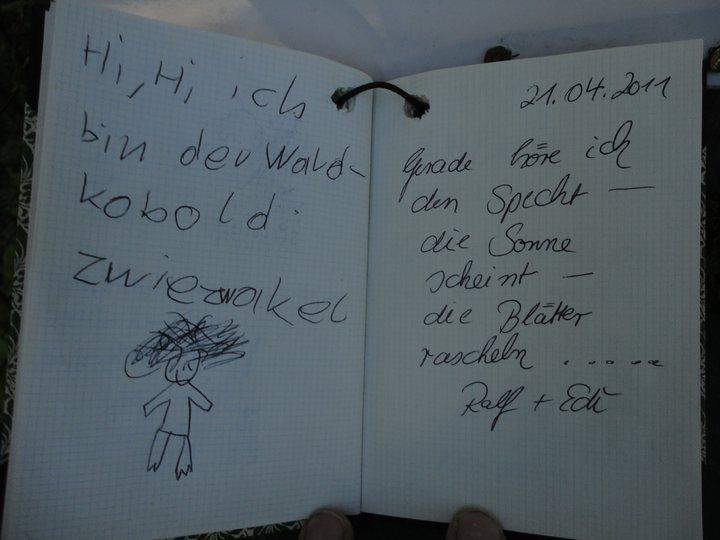 Hi, Hi, ich
bin der Wald-
kobold.
zwiezwakel
21.04.2011
Gerade höre ich
den Specht —
die Sonne
scheint —
die Blätter
rascheln ......
Ralf + Edi